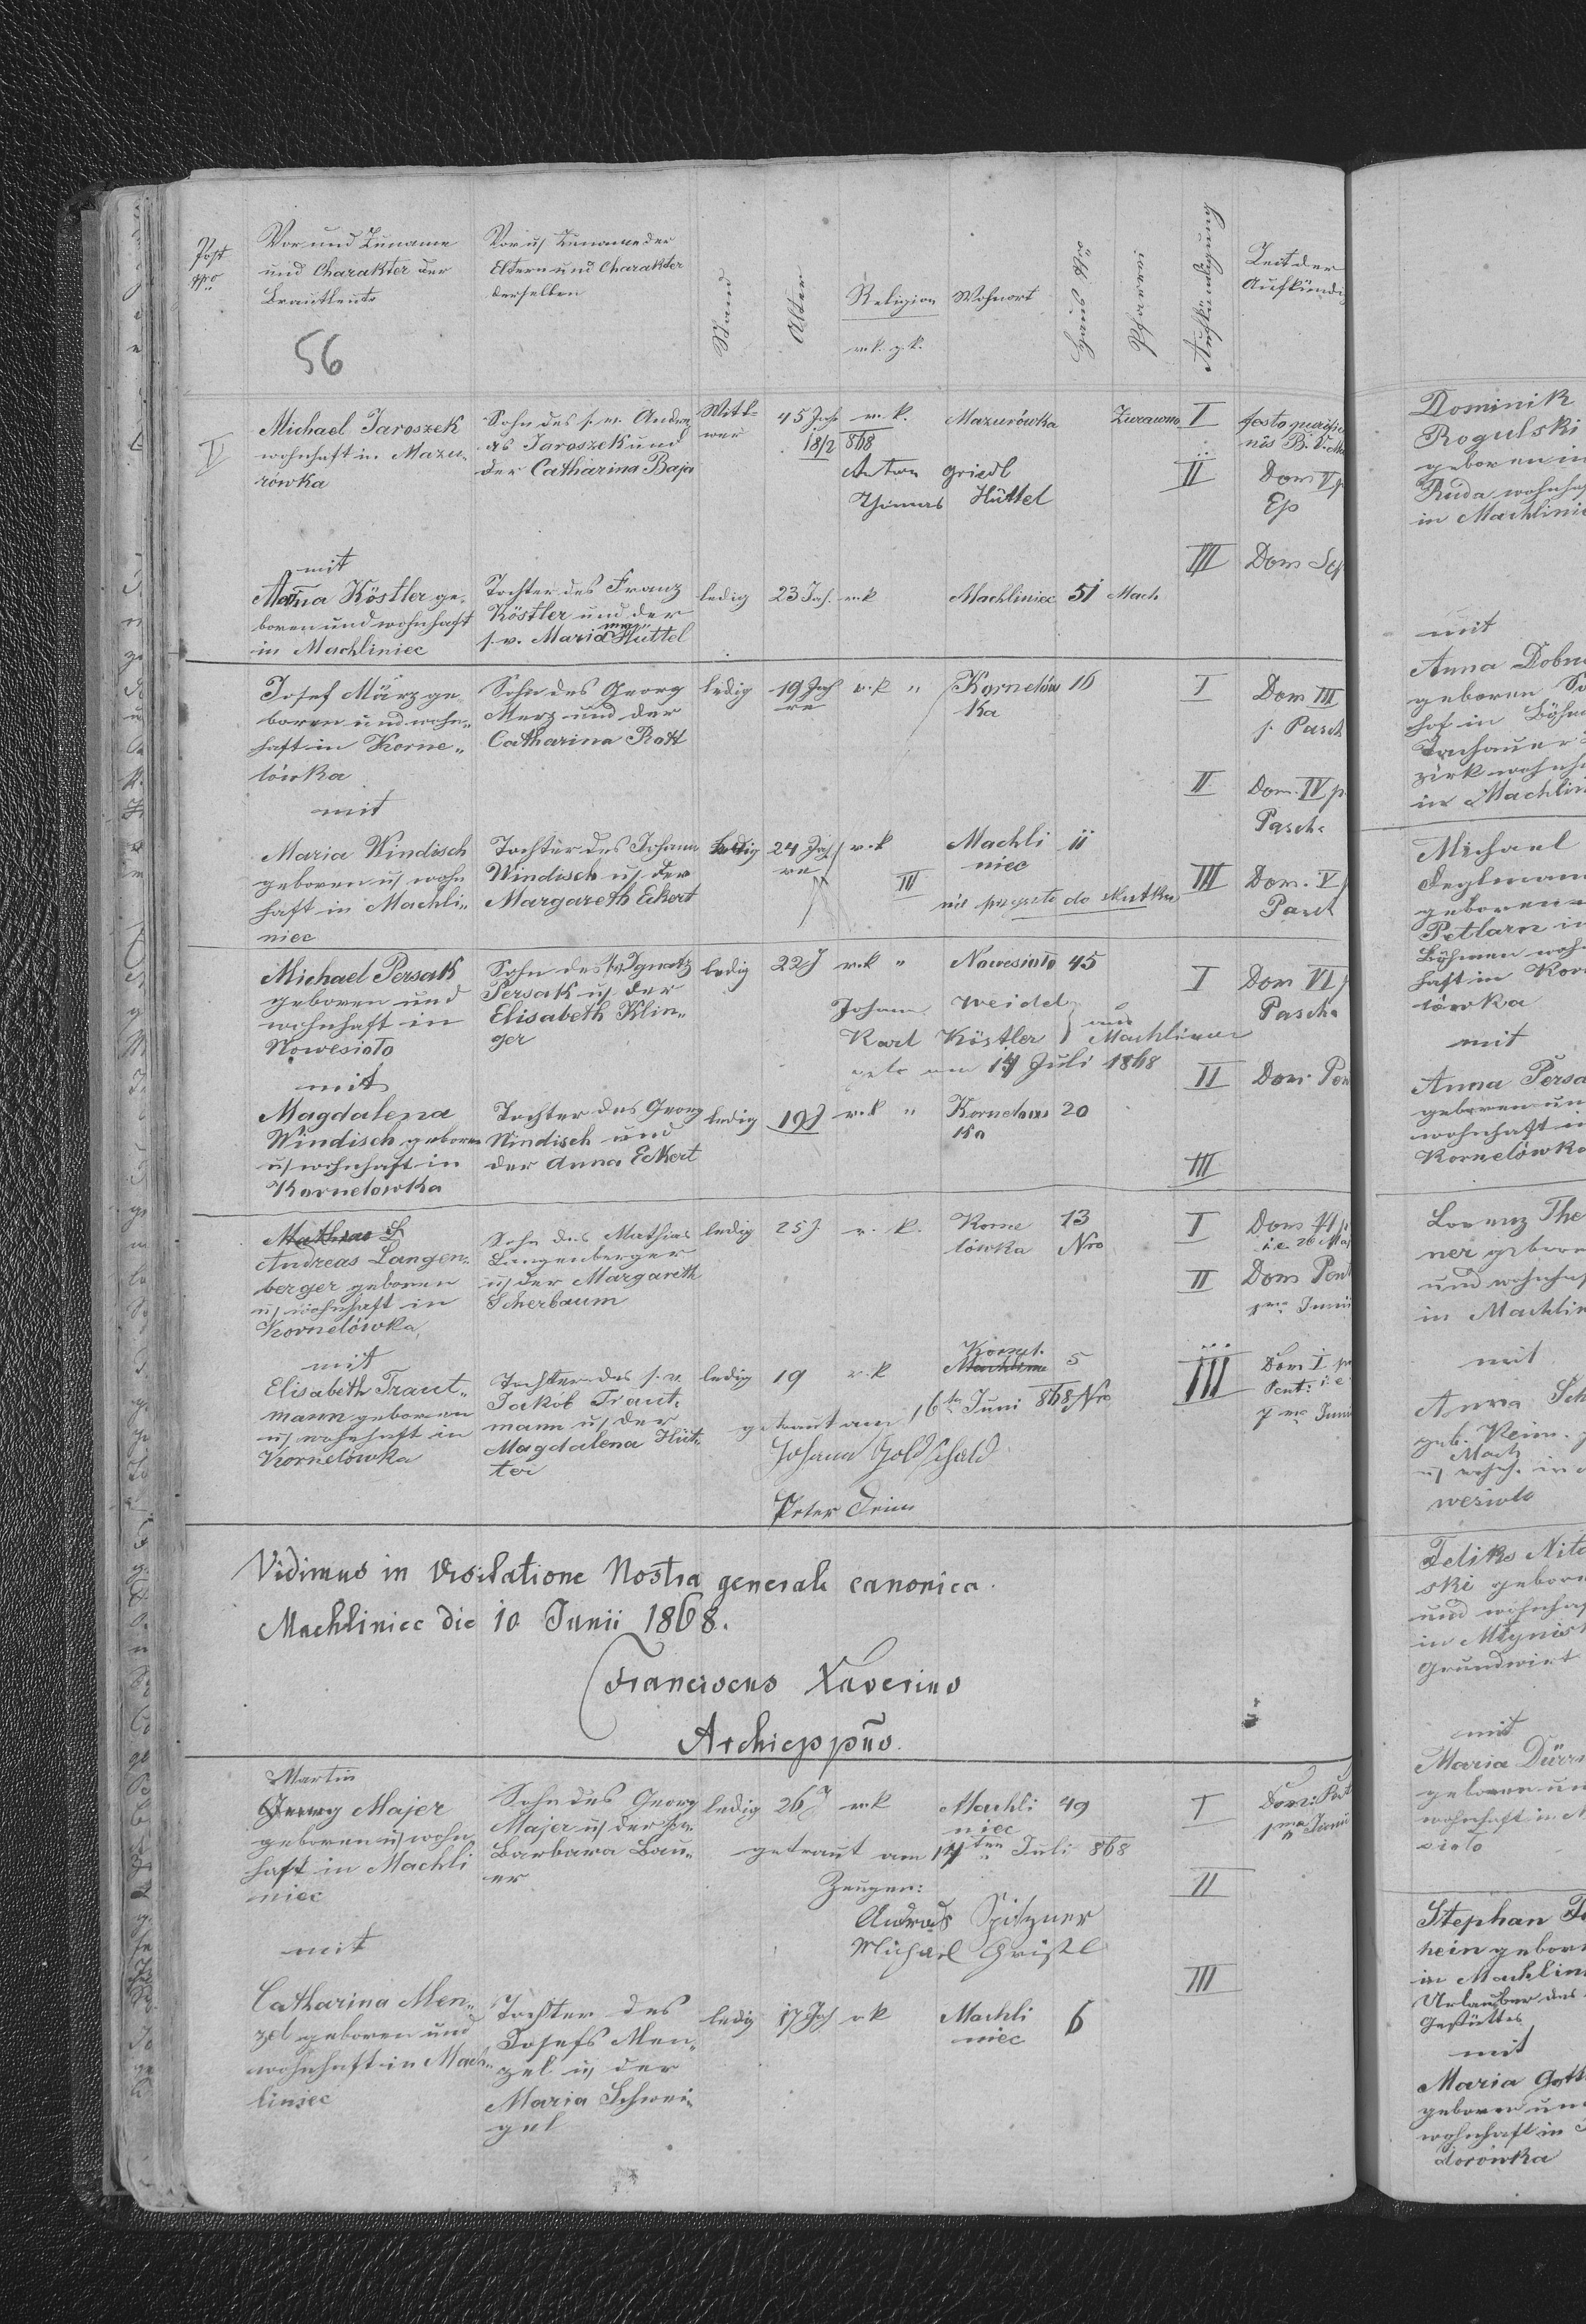 Post
Nro
Vor und Zuname
und Charakter der
Brautleute
Vor u/ Zuname der
Eltern und Charakter
derselben
Stand
Alter
Religion
r.k. g.k.
Wohnort
Haus Nro
Pfarrei
Aufkündigung
Zeit der
Aufkündi
56
V
Michael Jaroszek
wohnhaft in Mazu„
rówka
Sohn des s.v. Andre
as Jaroszek und
der Catharina Baja
Witt=
wer
45 Jah
r.k.
Mazurówka
Zurawno
18/2 868
Anton Griedl
Thomas Hüttel
I
festo purific
nis B. V. Ma
II
Dom V p
Ep
III
Dom Sep
mit
Anna Köstler ge„
boren und wohnhaft
in Machliniec
Tochter des Franz
Köstler und der
s.v. Maria Hüttel
ledig
23 Jah.
r.k
Machliniec
51
Mach
Josef März ge
boren und wohn„
haft in Korne„
lówka
Sohn des Georg
Merz und der
Catharina Rott
ledig
19 Jah
re
r.k "
Kornelów
ka
16
I
Dom III
p. Pasch
II
Dom. IV p.
Pasch.
mit
Maria Windisch
geboren u/ wohn
haft in Machli„
niec
Tochter des Johann
Windisch u/ der
Margareth Eckert
ledig
24 Jah
re
r.k
Machli
niec
11
III
nie do skutku
III
Dom. V p
Pasch
Michael Persak
geboren und
wohnhaft in
Nowesioto
Sohn des Ignatz
Persak u/ der
Elisabeth Klin„
ger
ledig
22 J
r.k "
Nowesioto
45
Johann Weidel
Karl Köstler } aus Machliniec
am 14 Juli 1868
I
Dom VI p
Pascha
II
Dom Pen
III
mit
Magdalena
Windisch geboren
u/ wohnhaft in
Kornelowka
Tochter des Georg
Windisch und
der Anna Eckert
ledig
19 J
r.k "
Kornelow
ka
20
Mathias L
Andreas Langen„
berger geboren
u/ wohnhaft in
Kornelówka
Sohn des Mathias
Langenberger
u/ der Margareth
Scherbaum
ledig
25 J
r. k.
Korne
lówka
13
Nro
I
Dom VI p
i.e. 26 Maj
II
Dom Pent
1ma Junii
mit
Elisabeth Traut„
mann geboren
u/ wohnhaft in
Kornelówka
Tochter des s.v.
Jakob Traut„
mann u/ der
Magdalena Hüt„
ter
ledig
19
r.k
Kornel.
Machlinie
5
Nro
getraut am 16ten Juni 868
Johann Goldschald
Peter Deim
III
Dom I p
Pent: i.e
7 ma Junii
Vidimus in visitatione Nostra generale canonica.
Machliniec die 10 Junii 1868.
Franciscus Xaverius
Archieppũs.
Martin
Georg Majer
geboren u/ wohn
haft in Machli
niec
Sohn des Georg
Majer u/ der s.v.
Barbara Bau„
er
ledig
26 J
r.k
Machli
niec
49
getraut am 14ten Juli 868
Zeugen:
Andreas Spitzner
Michael Griessl
I
Dom: Pent
1ma Junii
II
III
mit
Catharina Men„
zel geboren und
wohnhaft in Mach„
liniec
Tochter des
Josefs Men„
zel u/ der
Maria Schwei„
gel
ledig
17 Jah
r.k
Machli
niec
6
Dominik
Rogulski
geboren in
Ruda wohnhaf
in Machlinie
mit
Anna Dobn
geboren
hof in Böhm
Tachauer
zirk wohnh
in Machlin
Michael
Deglmann
geboren
Petlarn in
Böhmen woh
haft in Kor
lówka
mit
Anna Persa
geboren un
wohnhaft in
Kornelówka
Lorenz The
ner gebore
und wohnhaf
in Machlin
mit
Anna Sch
geb. Keim.
Mach
u/ wohnh. in
wesiolo
Feliks Nite
ski gebore
und wohnhaf
in Młynis
Grundwirt
mit
Maria Dürr
geboren un
wohnhaft in
sioło
Stephan
hein gebor
in Machlin
Urlauber des
Gestüttes
mit
Maria Gott
geboren un
wohnhaft in
dorówka